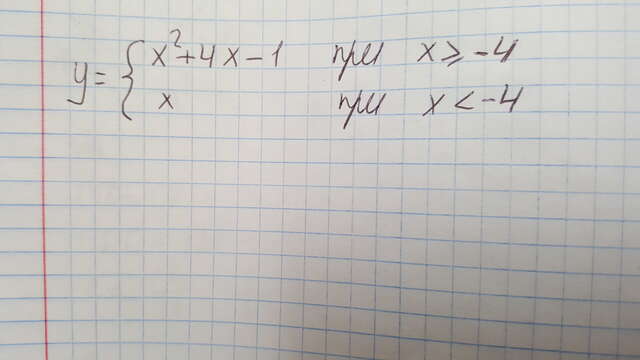 y = { x²+4x-1 при x ≥ -4
x при x < -4